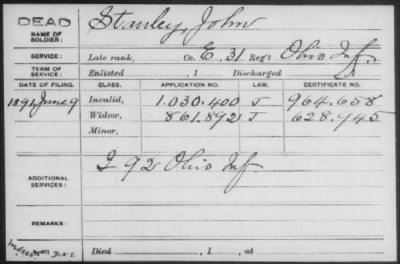 DEAD
NAME OF SOLDIER: Stanley, John
SERVICE: Late rank, Co. E. 31 Reg't Ohio Inf.
TERM OF SERVICE: Enlisted , 1 Discharged , 1
DATE OF FILING. CLASS. APPLICATION NO. LAW. CERTIFICATE NO.
1891, June 9 Invalid, 1.030.400 J 964.658
Widow, 861.892 J 628.745
Minor,
ADDITIONAL SERVICES: I 92 Ohio Inf.
REMARKS:
Died , 1 , at